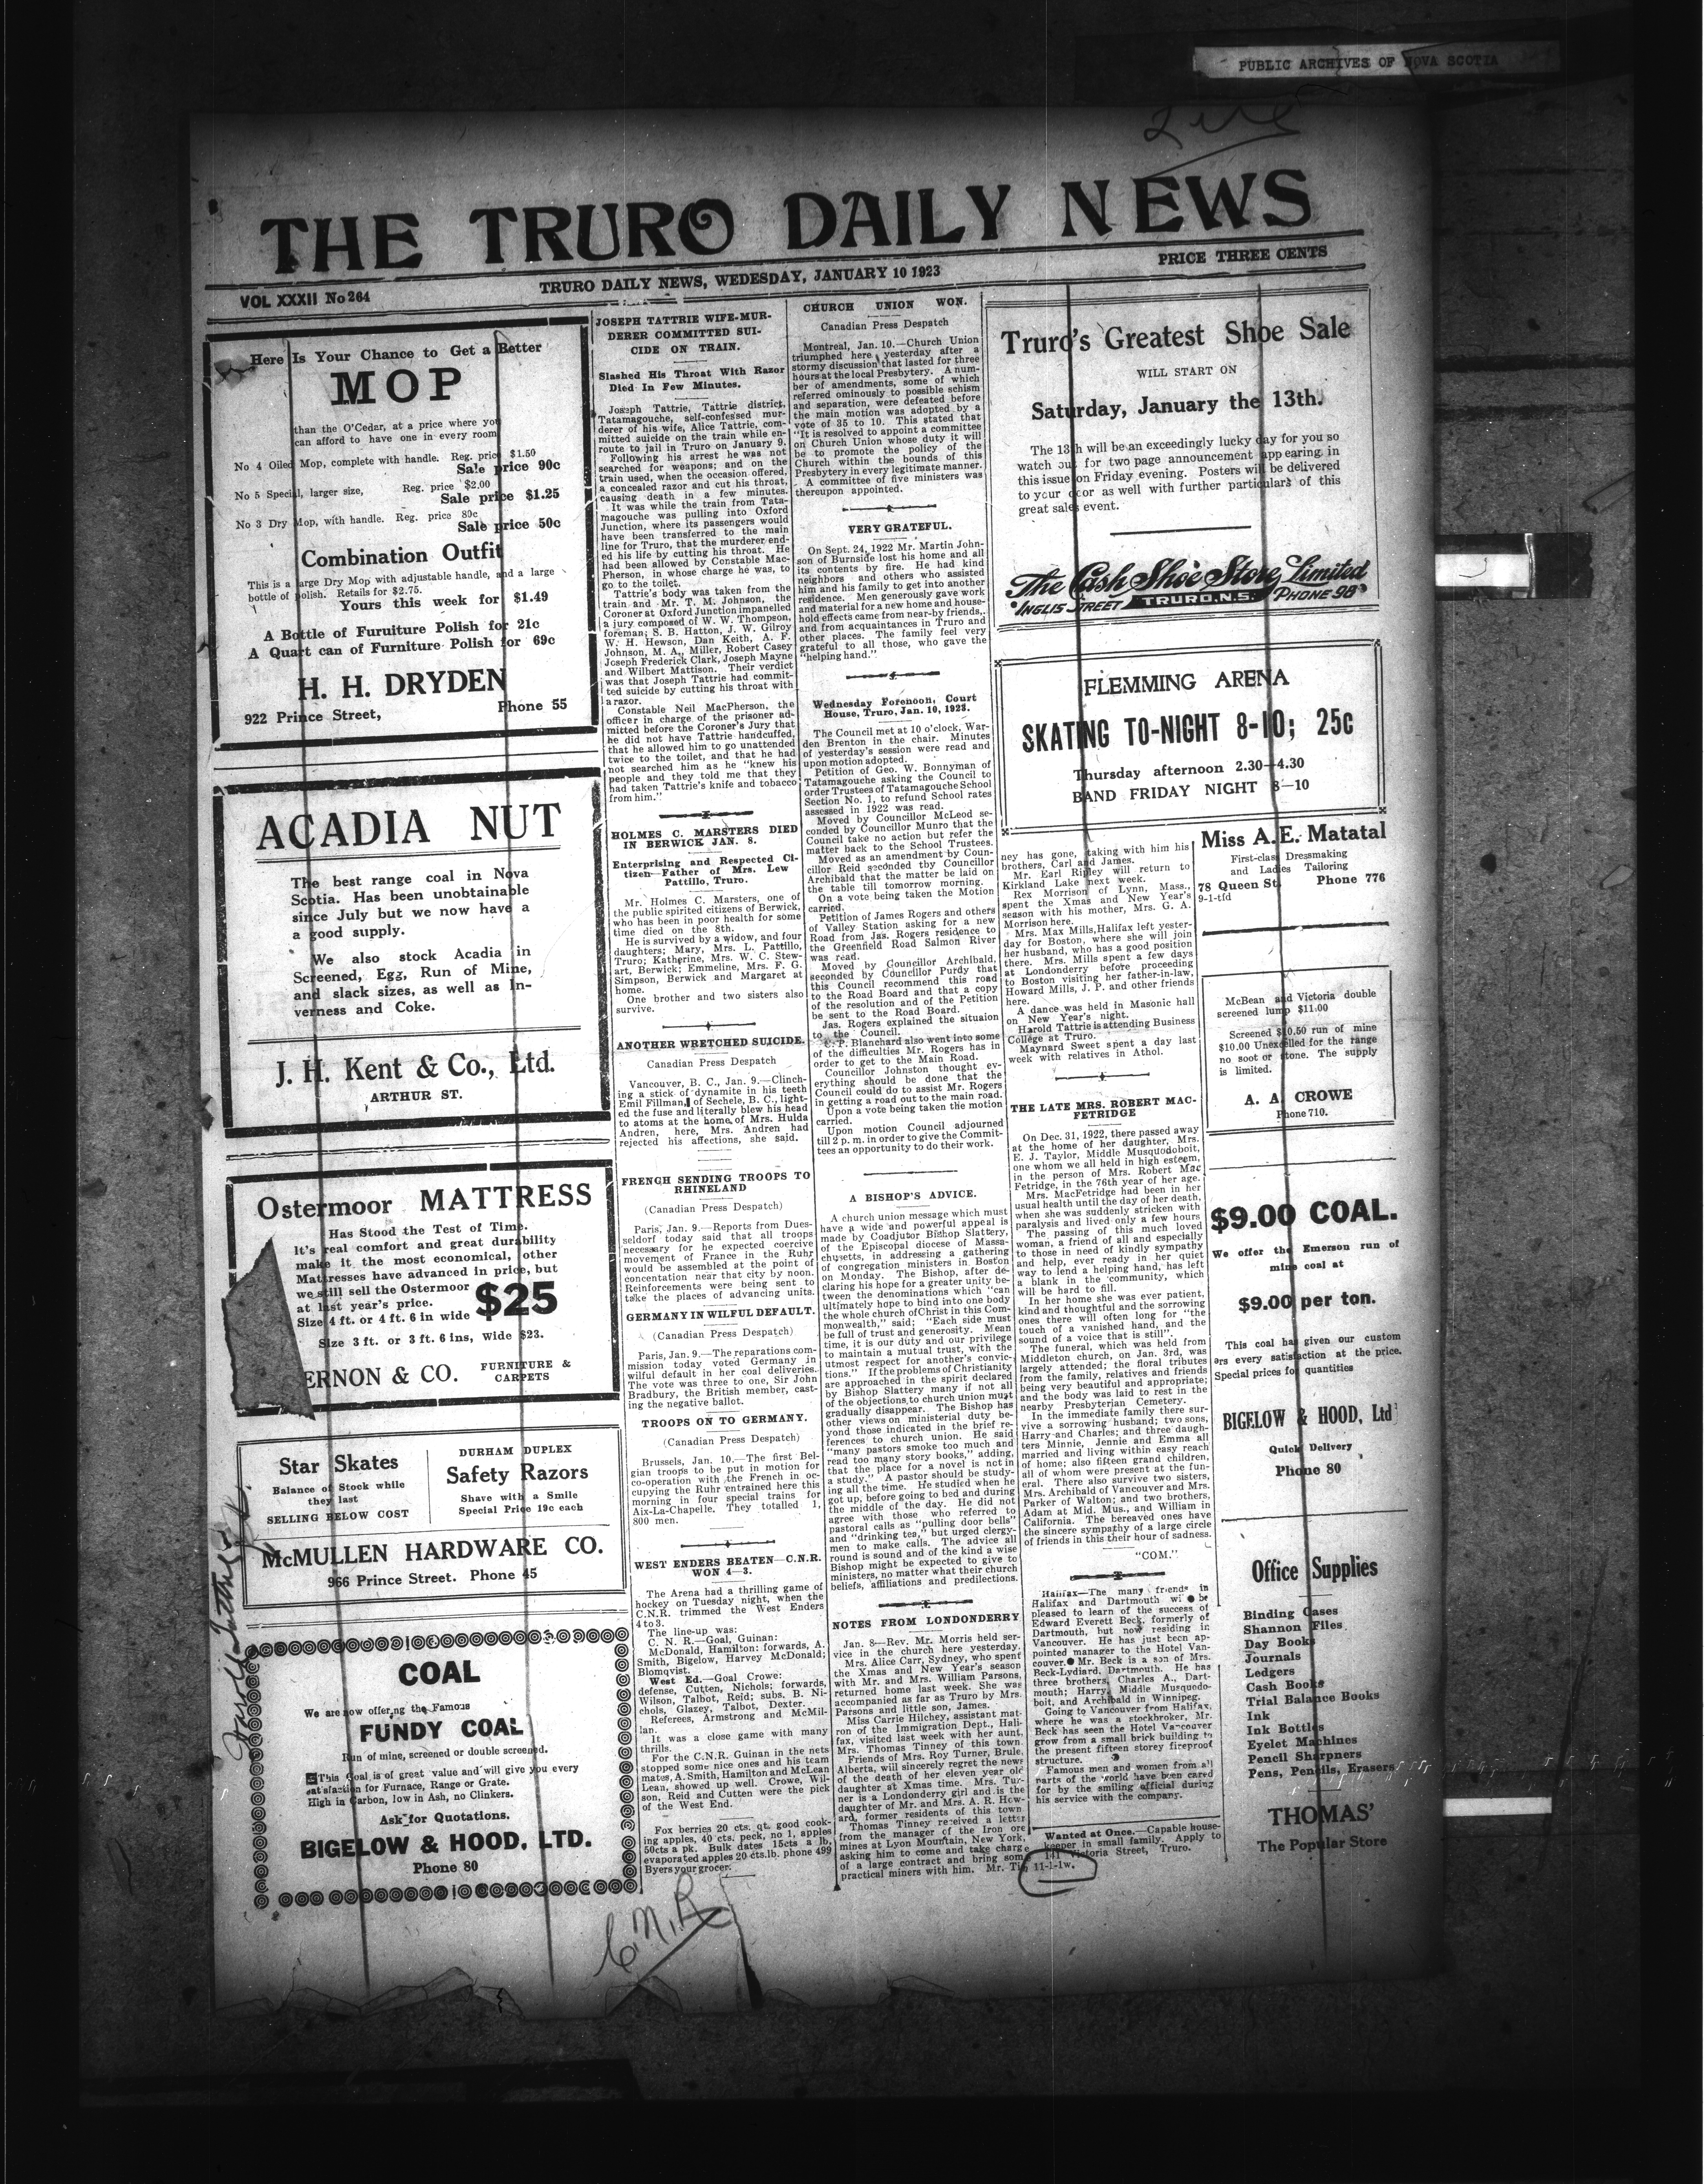 PUBLIC ARCHIVES OF NOVA SCOTIA
THE TRURO DAILY NEWS
VOL XXXII No 264
TRURO DAILY NEWS, WEDESDAY, JANUARY 10 1923
PRICE THREE CENTS
Here Is Your Chance to Get a Better
MOP
than the O'Cedar, at a price where you
can afford to have one in every room
No 4 Oiled Mop, complete with handle. Reg. price $1.50
Sale price 90c
No 5 Special, larger size, Reg. price $2.00
Sale price $1.25
No 3 Dry Mop, with handle. Reg. price 89c
Sale price 50c
Combination Outfit
This is a large Dry Mop with adjustable handle, and a large
bottle of polish. Retails for $2.75.
Yours this week for $1.49
A Bottle of Furuiture Polish for 21c
A Quart can of Furniture Polish for 69c
H. H. DRYDEN
922 Prince Street, Phone 55
ACADIA NUT
The best range coal in Nova
Scotia. Has been unobtainable
since July but we now have a
a good supply.
We also stock Acadia in
Screened, Egg, Run of Mine,
and slack sizes, as well as In-
verness and Coke.
J. H. Kent & Co., Ltd.
ARTHUR ST.
Ostermoor MATTRESS
Has Stood the Test of Time.
It's real comfort and great durability
make it the most economical, other
Mattresses have advanced in price, but
we still sell the Ostermoor
at last year's price. $25
Size 4 ft. or 4 ft. 6 in wide
Size 3 ft. or 3 ft. 6 ins, Wide $23.
ERNON & CO. FURNITURE &
CARPETS
Star Skates
Balance of Stock while
they last
SELLING BELOW COST
DURHAM DUPLEX
Safety Razors
Shave with a Smile
Special Price 19c each
McMULLEN HARDWARE CO.
966 Prince Street. Phone 45
COAL
We are now offering the Famous
FUNDY COAL
Run of mine, screened or double screened.
This Coal is of great value and will give you every
satisfaction for Furnace, Range or Grate.
High in Carbon, low in Ash, no Clinkers.
Ask for Quotations.
BIGELOW & HOOD, LTD.
Phone 80
JOSEPH TATTRIE WIFE-MUR-
DERER COMMITTED SUI-
CIDE ON TRAIN.
Slashed His Throat With Razor
Died In Few Minutes.
Joseph Tattrie, Tattrie district,
Tatamagouche, self-confessed mur-
derer of his wife, Alice Tattrie, com-
mitted suicide on the train while en-
route to jail in Truro on January 9.
Following his arrest he was not
searched for weapons; and on the
train used, when the occasion offered,
a concealed razor and cut his throat,
causing death in a few minutes.
It was while the train from Tata-
magouche was pulling into Oxford
Junction, where its passengers would
have been transferred to the main
line for Truro, that the murderer end-
ed his life by cutting his throat. He
had been allowed by Constable Mac-
Pherson, in whose charge he was, to
go to the toilet.
Tattrie's body was taken from the
train and Mr. T. M. Johnson, the
Coroner at Oxford Junction impanelled
a jury composed of W. W. Thompson,
foreman; S. B. Hatton, J. W. Gilroy
W. H. Hewson, Dan Keith, A. F.
Johnson, M. A., Miller, Robert Casey
Joseph Frederick Clark, Joseph Mayne
and Wilbert Mattison. Their verdict
was that Joseph Tattrie had commit-
ted suicide by cutting his throat with
a razor.
Constable Neil MacPherson, the
officer in charge of the prisoner ad-
mitted before the Coroner's Jury that
he did not have Tattrie handcuffed,
that he allowed him to go unattended
twice to the toilet, and that he had
not searched him as he "knew his
people and they told me that they
had taken Tattrie's knife and tobacco
from him."
HOLMES C. MARSTERS DIED
IN BERWICK JAN. 8.
Enterprising and Respected Ci-
tizen—Father of Mrs. Lew
Pattillo, Truro.
Mr. Holmes C. Marsters, one of
the public spirited citizens of Berwick,
who has been in poor health for some
time died on the 8th.
He is survived by a widow, and four
daughters; Mary, Mrs. L. Pattillo,
Truro; Katherine, Mrs. W. C. Stew-
art, Berwick; Emmeline, Mrs. F. G.
Simpson, Berwick and Margaret at
home.
One brother and two sisters also
survive.
ANOTHER WRETCHED SUICIDE.
Canadian Press Despatch
Vancouver, B. C., Jan. 9.—Clinch-
ing a stick of dynamite in his teeth
Emil Fillman, of Sechele, B. C., light-
ed the fuse and literally blew his head
to atoms at the home of Mrs. Hulda
Andren, here, Mrs. Andren had
rejected his affections, she said.
FRENCH SENDING TROOPS TO
RHINELAND
(Canadian Press Despatch)
Paris, Jan. 9.—Reports from Dues-
seldorf today said that all troops
necessary for he expected coercive
movement of France in the Ruhr
would be assembled at the point of
concentation near that city by noon.
Reinforcements were being sent to
take the places of advancing units.
GERMANY IN WILFUL DEFAULT.
(Canadian Press Despatch)
Paris, Jan. 9.—The reparations com-
mission today voted Germany in
wilful default in her coal deliveries.
The vote was three to one, Sir John
Bradbury, the British member, cast-
ing the negative ballot.
TROOPS ON TO GERMANY.
(Canadian Press Despatch)
Brussels, Jan. 10.—The first Bel-
gian troops to be put in motion for
co-operation with the French in oc-
cupying the Ruhr entrained here this
morning in four special trains for
Aix-La-Chapelle. They totalled 1,
800 men.
WEST ENDERS BEATEN—C.N.R.
WON 4—3.
The Arena had a thrilling game of
hockey on Tuesday night, when the
C.N.R. trimmed the West Enders
4 to 3.
The line-up was:
C. N. R.—Goal, Guinan:
McDonald, Hamilton: forwards, A.
Smith, Bigelow, Harvey McDonald;
Blomqvist.
West Ed.—Goal Crowe:
defense, Cutten, Nichols; forwards,
Wilson, Talbot, Reid; subs. B. Ni-
chols, Glazey, Talbot, Dexter.
Referees, Armstrong and McMil-
lan.
It was a close game with many
thrills.
For the C.N.R. Guinan in the nets
stopped some nice ones and his team
mates, A. Smith, Hamilton and McLean
Lean, showed up well. Crowe, Wil-
son, Reid and Cutten were the pick
of the West End.
Fox berries 20 cts. qt. good cook-
ing apples, 40 cts. peck, no 1, apples
50cts a pk. Bulk dates 15cts a lb,
evaporated apples 20 cts.lb. phone 499
Byers your grocer.
C.N.R
CHURCH UNION WON.
Canadian Press Despatch
Montreal, Jan. 10.—Church Union
triumphed here yesterday after a
stormy discussion that lasted for three
hours at the local Presbytery. A num-
ber of amendments, some of which
referred ominously to possible schism
and separation, were defeated before
the main motion was adopted by a
vote of 35 to 10. This stated that
"It is resolved to appoint a committee
on Church Union whose duty it will
be to promote the policy of the
Church within the bounds of this
Presbytery in every legitimate manner.
A committee of five ministers was
thereupon appointed.
VERY GRATEFUL.
On Sept. 24, 1922 Mr. Martin John-
son of Burnside lost his home and all
its contents by fire. He had kind
neighbors and others who assisted
him and his family to get into another
residence. Men generously gave work
and material for a new home and house-
hold effects came from near-by friends,
and from acquaintances in Truro and
other places. The family feel very
grateful to all those, who gave the
"helping hand."
Wednesday Forenoon, Court
House, Truro, Jan. 10, 1923.
The Council met at 10 o'clock, War-
den Brenton in the chair. Minutes
of yesterday's session were read and
upon motion adopted.
Petition of Geo. W. Bonnyman of
Tatamagouche asking the Council to
order Trustees of Tatamagouche School
Section No. 1, to refund School rates
assessed in 1922 was read.
Moved by Councillor McLeod se-
conded by Councillor Munro that the
Council take no action but refer the
matter back to the School Trustees.
Moved as an amendment by Coun-
cillor Reid seconded thy Councillor
Archibald that the matter be laid on
the table till tomorrow morning.
On a vote being taken the Motion
carried.
Petition of James Rogers and others
of Valley Station asking for a new
Road from Jas. Rogers residence to
the Greenfield Road Salmon River
was read.
Moved by Councillor Archibald,
seconded by Councillor Purdy that
this Council recommend this road
to the Road Board and that a copy
of the resolution and of the Petition
be sent to the Road Board.
Jas. Rogers explained the situaion
to the Council.
C. P. Blanchard also went into some
of the difficulties Mr. Rogers has in
order to get to the Main Road.
Councillor Johnston thought ev-
erything should be done that the
Council could do to assist Mr. Rogers
in getting a road out to the main road.
Upon a vote being taken the motion
carried.
Upon motion Council adjourned
till 2 p. m. in order to give the Commit-
tees an opportunity to do their work.
A BISHOP'S ADVICE.
A church union message which must
have a wide and powerful appeal is
made by Coadjutor Bishop Slattery,
of the Episcopal diocese of Massa-
chusetts, in addressing a gathering
of congregation ministers in Boston
on Monday. The Bishop, after de-
claring his hope for a greater unity be-
tween the denominations which "can
ultimately hope to bind into one body
the whole church of Christ in this Com-
monwealth," said; "Each side must
be full of trust and generosity. Mean
time, it is our duty and our privilege
to maintain a mutual trust, with the
utmost respect for another's convic-
tions." If the problems of Christianity
are approached in the spirit declared
by Bishop Slattery many if not all
of the objections to church union must
gradually disappear. The Bishop has
other views on ministerial duty be-
yond those indicated in the brief re-
ferences to church union. He said
"many pastors smoke too much and
read too many story books," adding,
that the place for a novel is not in
a study." A pastor should be study-
ing all the time. He studied when he
got up, before going to bed and during
the middle of the day. He did not
agree with those who referred to
pastoral calls as "pulling door bells"
and "drinking tea," but urged clergy-
men to make calls. The advice all
round is sound and of the kind a wise
Bishop might be expected to give to
ministers, no matter what their church
beliefs, affiliations and predilections.
NOTES FROM LONDONDERRY
Jan. 8—Rev. Mr. Morris held ser-
vice in the church here yesterday.
Mrs. Alice Carr, Sydney, who spent
the Xmas and New Year's season
with Mr. and Mrs. William Parsons,
returned home last week. She was
accompanied as far as Truro by Mrs.
Parsons and little son, James.
Miss Carrie Hilchey, assistant mat-
ron of the Immigration Dept., Hali-
fax, visited last week with her aunt,
Mrs. Thomas Tinney of this town.
Friends of Mrs. Roy Turner, Brule,
Alberta, will sincerely regret the news
of the death of her eleven year old
daughter at Xmas time. Mrs. Tur-
ner is a Londonderry girl and is the
daughter of Mr. and Mrs. A. R. How-
ard, former residents of this town
Thomas Tinney received a letter
from the manager of the Iron ore
mines at Lyon Mountain, New York,
asking him to come and take charge
of a large contract and bring som
practical miners with him. Mr. Ti
Truro's Greatest Shoe Sale
WILL START ON
Saturday, January the 13th.
The 13th will be an exceedingly lucky day for you so
watch out for two page announcement appearing in
this issue on Friday evening. Posters will be delivered
to your door as well with further particulars of this
great sales event.
The Cash Shoe Store, Limited
INGLIS STREET TRURO. N.S. PHONE 98
FLEMMING ARENA
SKATING TO-NIGHT 8-10; 25c
Thursday afternoon 2.30—4.30
BAND FRIDAY NIGHT 8—10
ney has gone, taking with him his
brothers, Carl and James.
Mr. Earl Ripley will return to
Kirkland Lake next week.
Rex Morrison of Lynn, Mass.,
spent the Xmas and New Year's
season with his mother, Mrs. G. A.
Morrison here.
Mrs. Max Mills, Halifax left yester-
day for Boston, where she will join
her husband, who has a good position
there. Mrs. Mills spent a few days
at Londonderry before proceeding
to Boston visiting her father-in-law,
Howard Mills, J. P. and other friends
here.
A dance was held in Masonic hall
on New Year's night.
Harold Tattrie is attending Business
College at Truro.
Maynard Sweet spent a day last
week with relatives in Athol.
THE LATE MRS. ROBERT MAC-
FETRIDGE
On Dec. 31, 1922, there passed away
at the home of her daughter, Mrs.
E. J. Taylor, Middle Musquodoboit,
one whom we all held in high esteem,
in the person of Mrs. Robert Mac
Fetridge, in the 76th year of her age.
Mrs. MacFetridge had been in her
usual health until the day of her death,
when she was suddenly stricken with
paralysis and lived only a few hours
The passing of this much loved
woman, a friend of all and especially
to those in need of kindly sympathy
and help, ever ready in her quiet
way to lend a helping hand, has left
a blank in the community, which
will be hard to fill.
In her home she was ever patient,
kind and thoughtful and the sorrowing
ones there will often long for "the
touch of a vanished hand, and the
sound of a voice that is still".
The funeral, which was held from
Middleton church, on Jan. 3rd, was
largely attended; the floral tributes
from the family, relatives and friends
being very beautiful and appropriate;
and the body was laid to rest in the
nearby Presbyterian Cemetery.
In the immediate family there sur-
vive a sorrowing husband; two sons,
Harry and Charles; and three daugh-
ters Minnie, Jennie and Emma all
married and living within easy reach
of home; also fifteen grand children,
all of whom were present at the fun-
eral. There also survive two sisters,
Mrs. Archibald of Vancouver and Mrs.
Parker of Walton; and two brothers,
Adam at Mid. Mus., and William in
California. The bereaved ones have
the sincere sympathy of a large circle
of friends in this their hour of sadness.
"COM."
Halifax—The many friends in
Halifax and Dartmouth will be
pleased to learn of the success of
Edward Everett Beck, formerly of
Dartmouth, but now residing in
Vancouver. He has just been ap-
pointed manager to the Hotel Van-
couver. Mr. Beck is a son of Mrs.
Beck-Lydiard, Dartmouth. He has
three brothers, Charles A., Dart-
mouth; Harry, Middle Musquodo-
boit, and Archibald in Winnipeg.
Going to Vancouver from Halifax,
where he was a stockbroker, Mr.
Beck has seen the Hotel Vancouver
grow from a small brick building to
the present fifteen storey fireproof
structure.
Famous men and women from all
parts of the world have been cared
for by the smiling official during
his service with the company.
Wanted at Once.—Capable house-
keeper in small family. Apply to
141 Victoria Street, Truro.
11-1-1w.
Miss A. E. Matatal
First-class Dressmaking
and Ladies Tailoring
78 Queen St, Phone 776
9-1-tfd
McBean and Victoria double
screened lump $11.00
Screened $10.50 run of mine
$10.00 Unexcelled for the range
no soot or stone. The supply
is limited.
A. A. CROWE
Phone 710.
$9.00 COAL.
We offer the Emerson run of
mine coal at
$9.00 per ton.
This coal has given our custom
ers every satisfaction at the price.
Special prices for quantities
BIGELOW & HOOD, Ltd
Quick Delivery
Phone 80
Office Supplies
Binding Cases
Shannon Files
Day Books
Journals
Ledgers
Cash Books
Trial Balance Books
Ink
Ink Bottles
Eyelet Machines
Pencil Sharpners
Pens, Pencils, Erasers
THOMAS'
The Popular Store